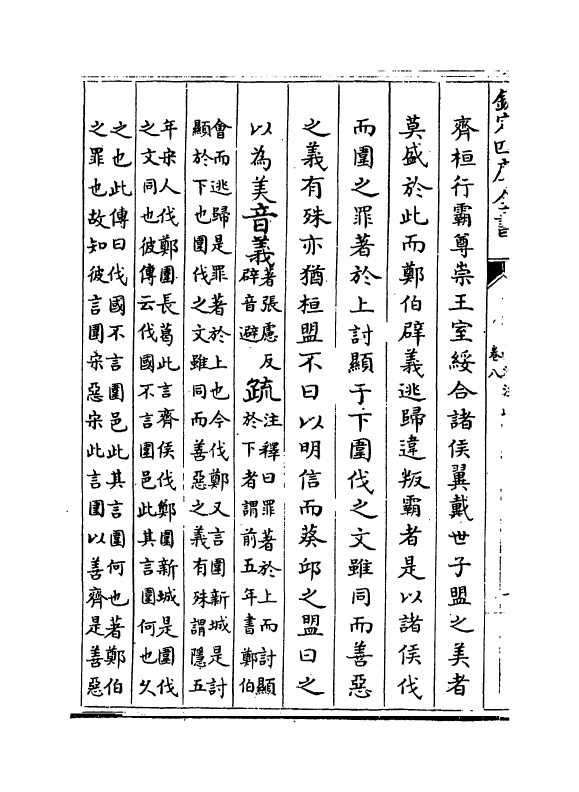 欽定四庫全書
卷八
齊桓行霸尊崇王室綏合諸侯翼戴世子盟之美者
莫盛於此而鄭伯辟義逃歸違叛霸者是以諸侯伐
而圍之罪著於上討顯于下圍伐之文雖同而善惡
之義有殊亦猶桓盟不日以明信而葵邱之盟日之
以為美音義著張慮反辟音避疏注釋曰罪著於上而討顯於下者謂前五年書鄭伯
會而逃歸是罪著於上也今伐鄭又言圍新城是討
顯於下也圍伐之文雖同而善惡之義有殊謂隱五
年宋人伐鄭圍長葛此言齊侯伐鄭圍新城是圍伐
之文同也彼傳云伐國不言圍邑此其言圍何也久
之也此傳曰伐國不言圍邑此其言圍何也著鄭伯
之罪也故知彼言圍宋惡宋此言圍以善齊是善惡